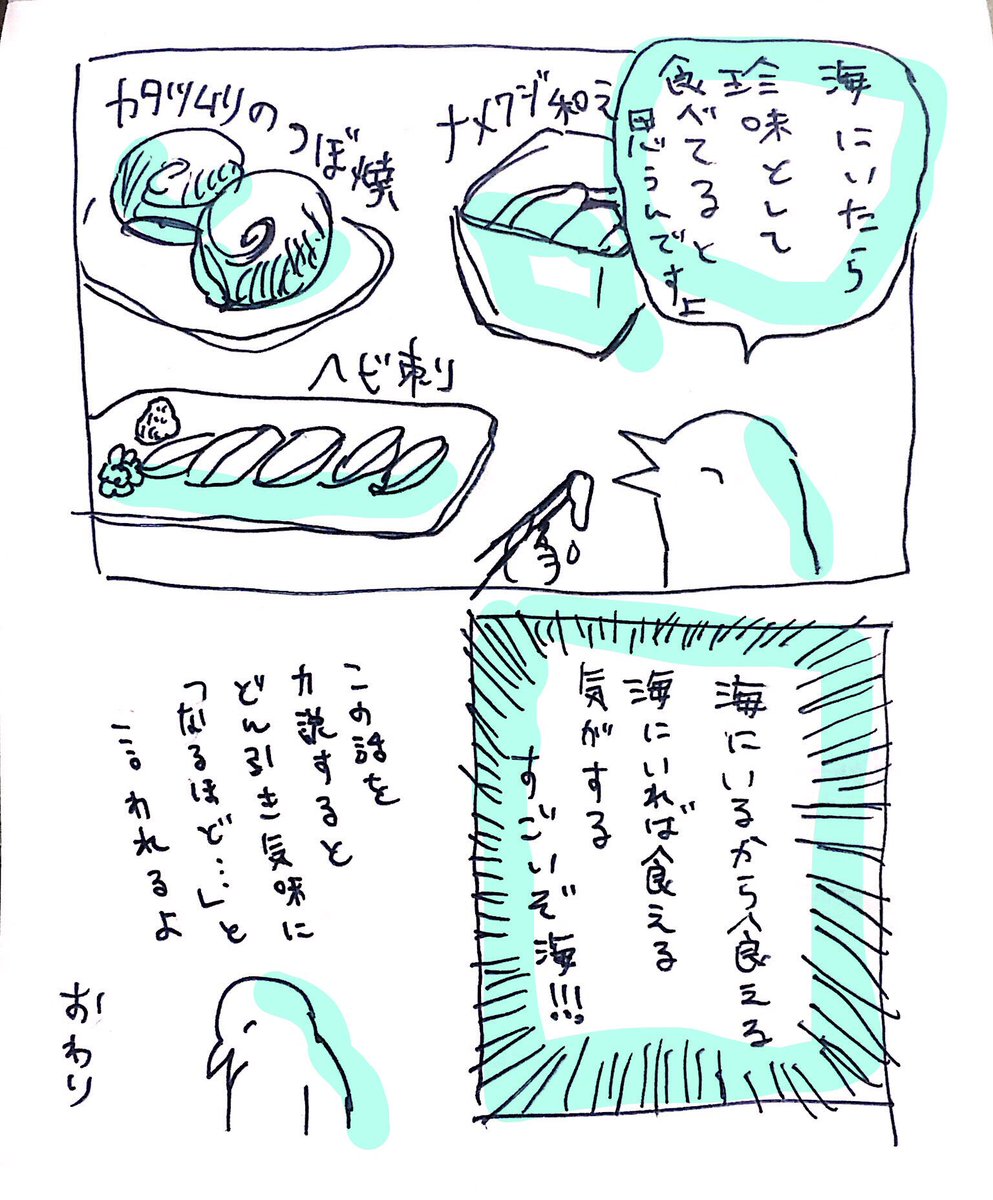 海にいたら
珍味として
食べてると
思うんですよ
ナメクジ和え
カタツムリの
つぼ焼
ヘビ刺り
海にいるから食える
海にいれば食える
気がする
すごいぞ海!!!
この話を
力説すると
どん引き気味に
「なるほど…」と
言われるよ
おわり